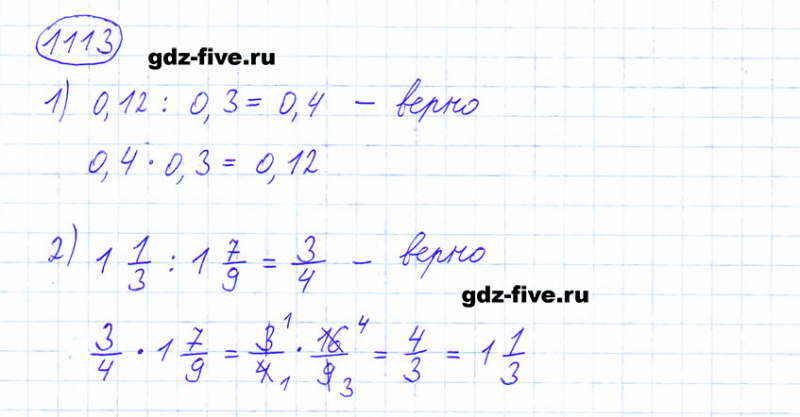 1113
gdz-five.ru
1) 0,12 : 0,3 = 0,4 – верно
0,4 · 0,3 = 0,12
2) 1 1/3 : 1 7/9 = 3/4 – верно
gdz-five.ru
3/4 · 1 7/9 = 3/4 · 16/9 = 4/3 = 1 1/3